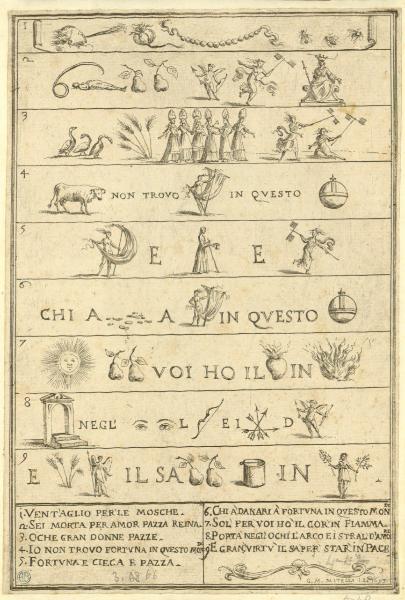 1
2
3
4 NON TROVO IN QVESTO
5 E E
6 CHI A A IN QVESTO
7 VOI HO IL IN
8 NEGL' L EI D
9 E IL SA IN
1. VENTAGLIO PER LE MOSCHE.
2. SEI MORTA PER AMOR PAZZA REINA.
3. OCHE GRAN DONNE PAZZE.
4. IO NON TROVO FORTVNA IN QVESTO MON DO
5. FORTVNA E CIECA E PAZZA.
6. CHI A DANARI A FORTVNA IN QVESTO MON DO
7. SOL PER VOI HO IL COR IN FIAMMA.
8. PORTA NEGL OCHI L'ARCO E I STRAL D'AMO RE
9. E GRAN VIRTV IL SAPER STAR IN PACE